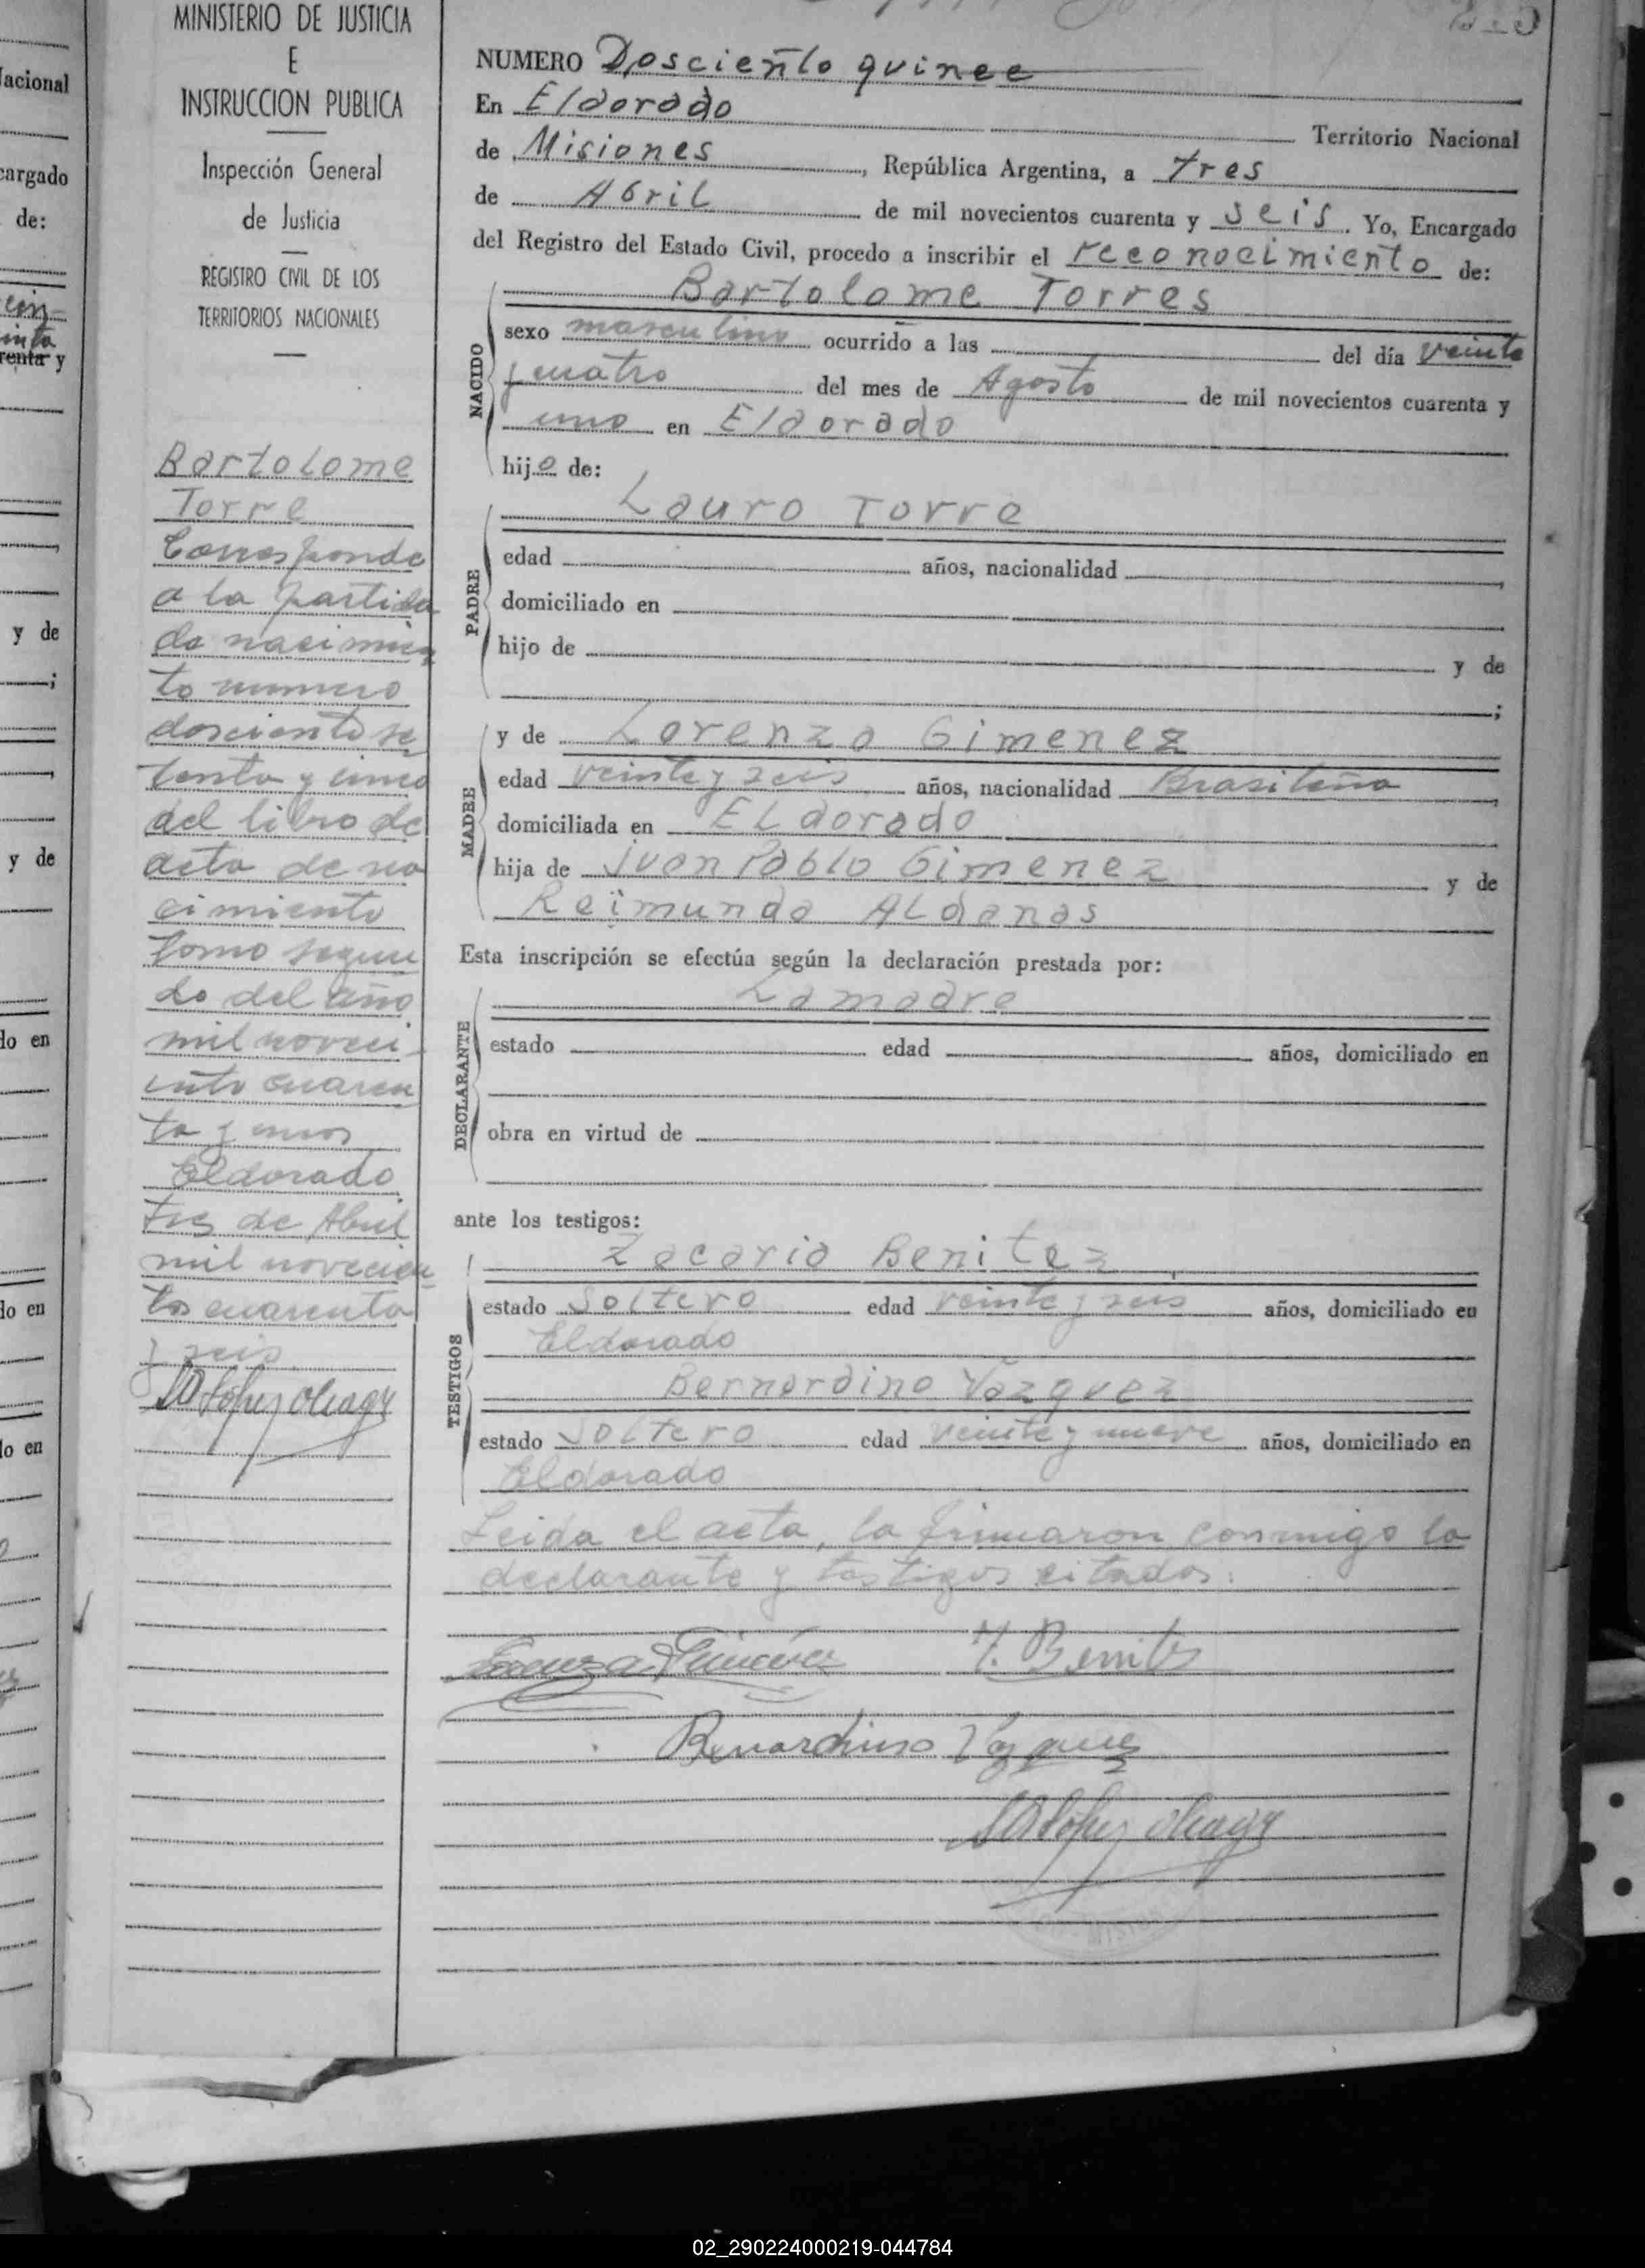 MINISTERIO DE JUSTICIA
E
INSTRUCCION PUBLICA
Inspección General
de Justicia
REGISTRO CIVIL DE LOS
TERRITORIOS NACIONALES
Bartolome
Torre
Corresponde
a la partida
de nacimien
to numero
dosciento se
tenta y cinco
del libro de
acta de na
cimiento
tomo segun
do del año
mil noveci
ento cuaren
ta y uno
Eldorado
tres de Abril
mil novecien
tos cuarenta
y seis
NUMERO Dosciento quince
En Eldorado Territorio Nacional
de Misiones, República Argentina, a tres
de Abril de mil novecientos cuarenta y seis. Yo, Encargado
del Registro del Estado Civil, procedo a inscribir el reconocimiento de:
Bartolome Torres
NACIDO
sexo masculino ocurrido a las del día veinte
y cuatro del mes de Agosto de mil novecientos cuarenta y
uno en Eldorado
hijo de:
PADRE
Lauro Torre
edad años, nacionalidad ,
domiciliado en
hijo de y de
;
MADRE
y de Lorenza Gimenez
edad veinte y seis años, nacionalidad Brasileña,
domiciliada en ELdorado
hija de Juan Pablo Gimenez y de
Reimunda ALdanas
Esta inscripción se efectúa según la declaración prestada por:
DECLARANTE
La madre
estado edad años, domiciliado en
obra en virtud de
ante los testigos:
TESTIGOS
Zacaria Benitez
estado Soltero edad veinte y seis años, domiciliado en
Eldorado
Bernardino Vazquez
estado Soltero edad veinte y nueve años, domiciliado en
Eldorado
Leida el acta, la firmaron conmigo la
declarante y testigos citados.
Lorenza Gimenez Z. Benitez
Bernardino Vazquez
02_290224000219-044784